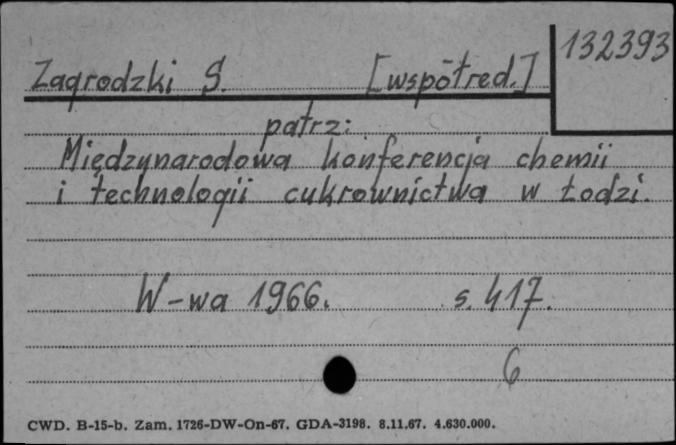 132393
Zagrodzki S. [współred.]
patrz:
Międzynarodowa konferencja chemii
i technologii cukrownictwa w Łodzi.
W-wa 1966. s. 417.
6
CWD. B-15-b. Zam. 1726-DW-On-67. GDA-3198. 8.11.67. 4.630.000.